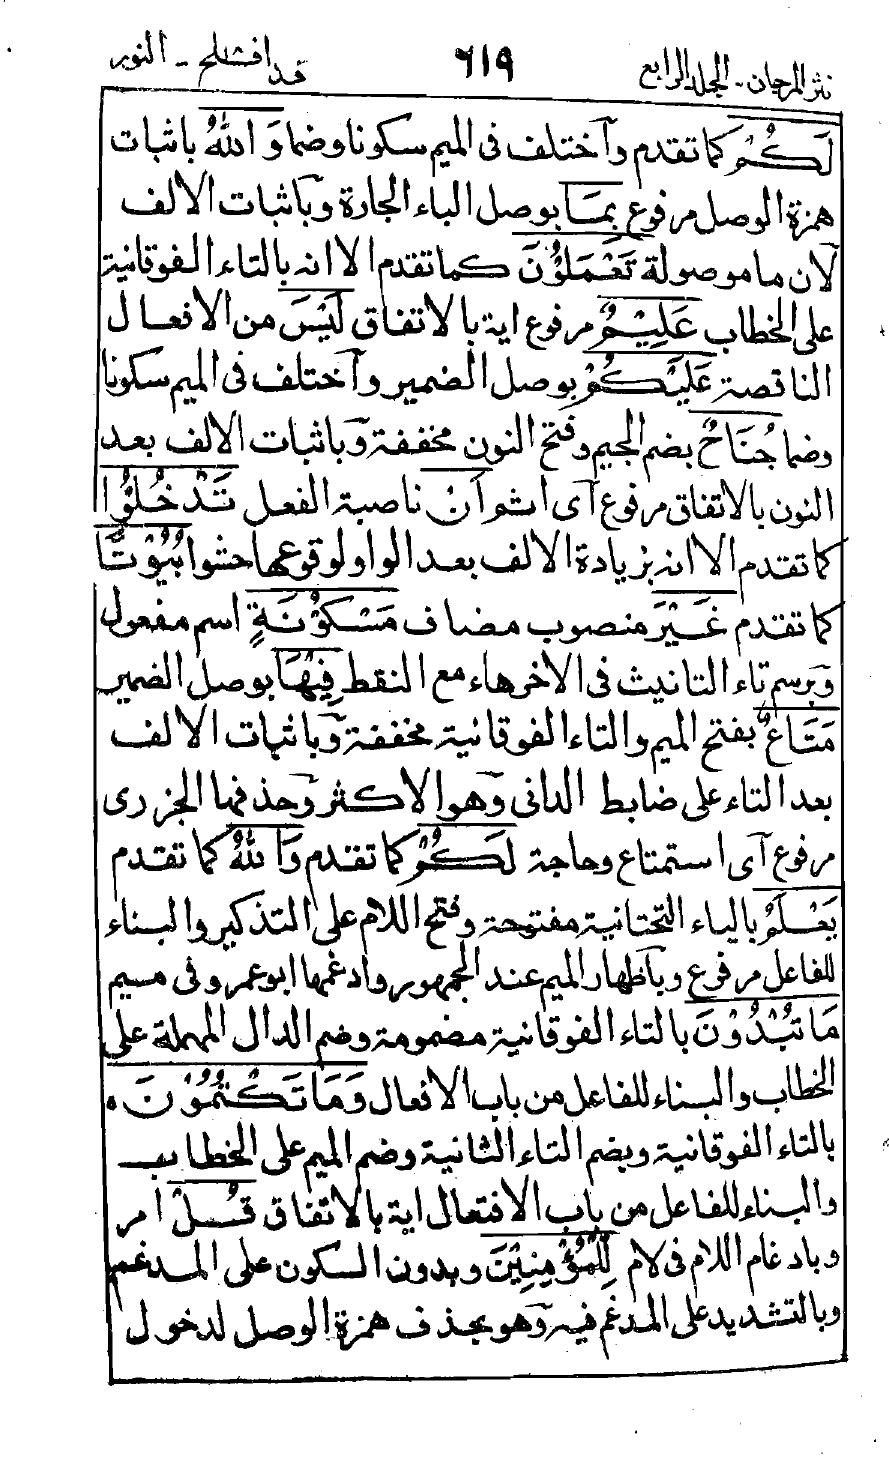 نثر المرجان - المجلد الرابع ٦١٩ قد افلح - النور
لَكُمْ كما تقدم وآختلف فى الميم سكونا وضما وَاللهُ باثبات
همزة الوصل مرفوع بِمَا بوصل الباء الجارة وبآثبات الالف
لآن ما موصولة تَعْمَلُوْنَ كما تقدم الا انه بالتاء الفوقانية
على الخطاب عَلِيْمٌ مرفوع اية بالاتفاق لَيْسَ من الافعال
الناقصة عَلَيْكُمْ بوصل الضمير وآختلف فى الميم سكونا
وضما جُنَاحٌ بضم الجيم وفتح النون مخففة وبآثبات الالف بعد
النون بالاتفاق مرفوع آى اثم اَنْ ناصبة الفعل تَدْخُلُوْا
كما تقدم الا انه بزيادة الالف بعد الواو لوقوعها حشوا بُيُوْتًا
كما تقدم غَيْرَ منصوب مضاف مَسْكُوْنَةٍ اسم مفعول
وبرسم تاء التانيث فى الاخر هاء مع النقط فِيْهَا بوصل الضمير
مَتَاعٌ بفتح الميم والتاء الفوقانية مخففة وبآثبات الالف
بعد التاء على ضابط الدانى وهو الاكثر وحذفها الجزرى
مرفوع آى استمتاع وحاجة لَكُمْ كما تقدم وَاللهُ كما تقدم
يَعْلَمُ بالياء التحتانية مفتوحة وفتح اللام على التذكير والبناء
للفاعل مرفوع وبآظهار الميم عند الجمهور وادغمها ابو عمرو فى ميم
مَا تُبْدُوْنَ بالتاء الفوقانية مضمومة وضم الدال المهملة على
الخطاب والبناء للفاعل من باب الافعال وَمَا تَكْتُمُوْنَ ه
بالتاء الفوقانية وبضم التاء الثانية وضم الميم على الخطاب
والبناء للفاعل من باب الافتعال اية بالاتفاق قُلْ امر
وبادغام اللام فى لام لِّلْمُؤْمِنِيْنَ وبدون السكون على المدغم
وبالتشديد على المدغم فيه وهو بحذف همزة الوصل لدخول